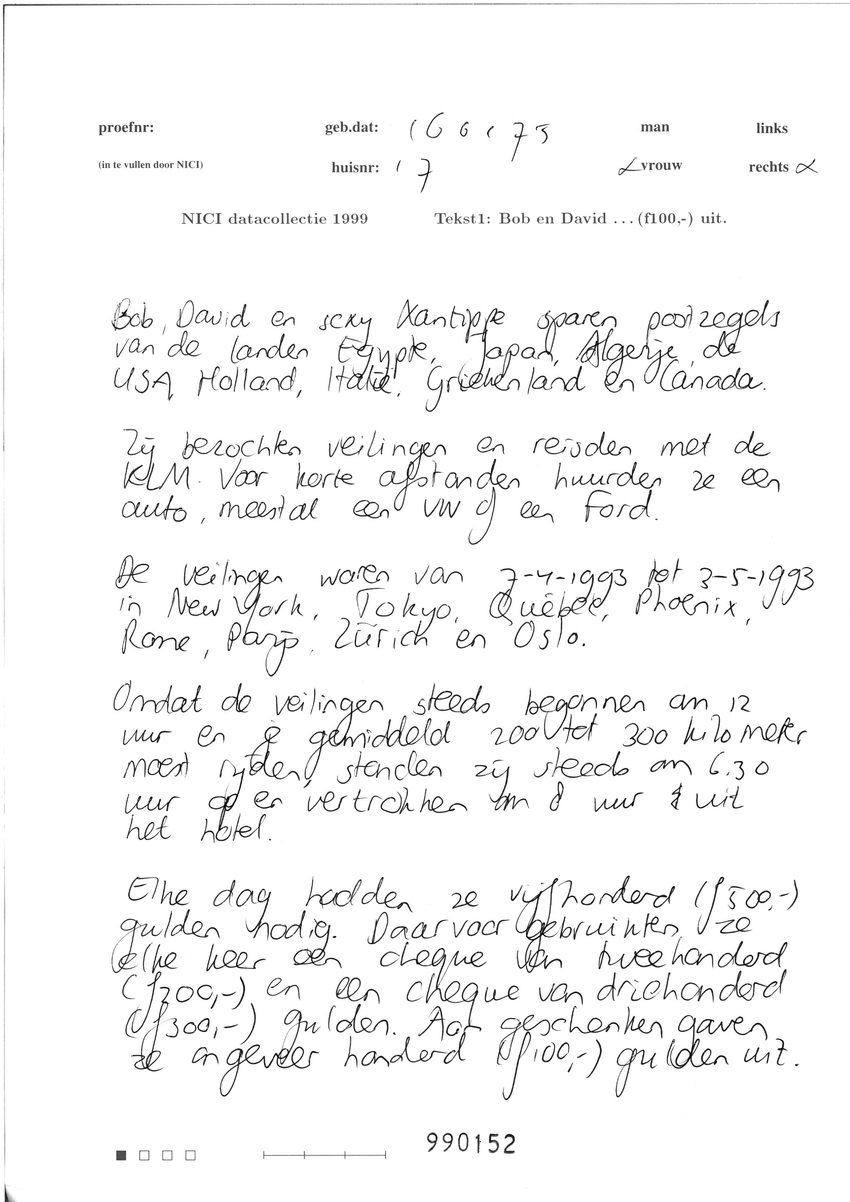 proefnr: geb.dat: 160173 man links
(in te vullen door NICI) huisnr: 17 vrouw rechts
NICI datacollectie 1999 Tekst1: Bob en David ... (f100,-) uit.
Bob, David en sexy Xantippe sparen postzegels
van de landen Egypte, Japan, Algerije, de
USA, Holland, Italië, Griekenland en Canada.
Zij bezochten veilingen en reisden met de
KLM. Voor korte afstanden huurden ze een
auto, meestal een VW of een Ford.
De veilingen waren van 7-4-1993 tot 3-5-1993
in New York, Tokyo, Québec, Phoenix,
Rome, Parijs, Zürich en Oslo.
Omdat de veilingen steeds begonnen om 12
uur en je gemiddeld 200 tot 300 kilometer
moest rijden, stonden zij steeds om 6.30
uur op en vertrokken om 8 uur uit
het hotel.
Elke dag hadden ze vijfhonderd (f500,-)
gulden nodig. Daarvoor gebruikten ze
elke keer een cheque van tweehonderd
(f200,-) en een cheque van driehonderd
(f300,-) gulden. Aan geschenken gaven
ze ongeveer honderd (f100,-) gulden uit.
990152